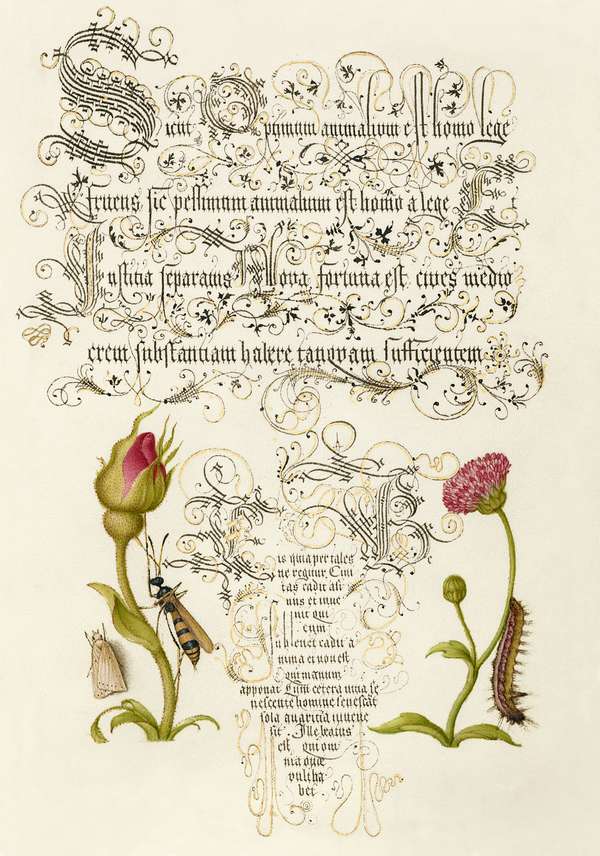 Sicut Optimum animalium est homo lege
fruens, sic pessimum animalium est homo a lege Et
Iustitia separatus Nova fortuna est, cives medio
crem substantiam habere tanquam sufficientem
is quia per tales Be
ne regitur. Civi
tas cadit asi
nus et inve
nit qui
eum
Sublevet cadit a
nima et non est
qui manum
apponat Cum cetera vitia se
nescente homine senescat
sola avaritia iuvene
scit. Ille beatus
est, qui om
nia que
vult ha
bet